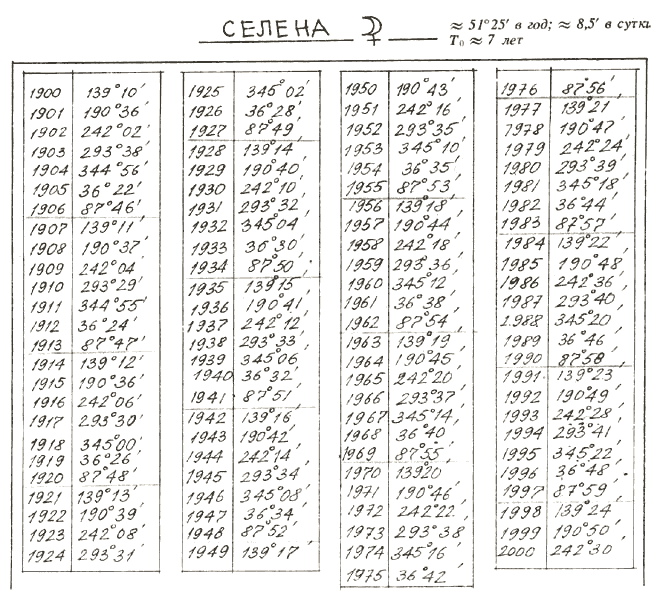 СЕЛЕНА
≈ 51°25′ в год; ≈ 8,5′ в сутки
T₀ ≈ 7 лет
1900 139°10′
1901 190°36′
1902 242°02′
1903 293°38′
1904 344°56′
1905 36°22′
1906 87°46′
1907 139°11′
1908 190°37′
1909 242°04′
1910 293°29′
1911 344°55′
1912 36°24′
1913 87°47′
1914 139°12′
1915 190°36′
1916 242°06′
1917 293°30′
1918 345°00′
1919 36°26′
1920 87°48′
1921 139°13′
1922 190°39′
1923 242°08′
1924 293°31′
1925 345°02′
1926 36°28′
1927 87°49′
1928 139°14′
1929 190°40′
1930 242°10′
1931 293°32′
1932 345°04′
1933 36°30′
1934 87°50′
1935 139°15′
1936 190°41′
1937 242°12′
1938 293°33′
1939 345°06
1940 36°32′
1941 87°51′
1942 139°16′
1943 190°42′
1944 242°14′
1945 293°34′
1946 345°08′
1947 36°34′
1948 87°52′
1949 139°17′
1950 190°43′
1951 242°16′
1952 293°35′
1953 345°10′
1954 36°35′
1955 87°53′
1956 139°18′
1957 190°44′
1958 242°18′
1959 293°36′
1960 345°12′
1961 36°38′
1962 87°54′
1963 139°19′
1964 190°45′
1965 242°20′
1966 293°37′
1967 345°14′
1968 36°40′
1969 87°55′
1970 139°20
1971 190°46′
1972 242°22′
1973 293°38
1974 345°16′
1975 36°42′
1976 87°56′
1977 139°21
1978 190°47′
1979 242°24′
1980 293°39′
1981 345°18′
1982 36°44′
1983 87°57′
1984 139°22′
1985 190°48
1986 242°36′
1987 293°40′
1988 345°20′
1989 36°46
1990 87°58′
1991 139°23
1992 190°49′
1993 242°28′
1994 293°41′
1995 345°22
1996 36°48′
1997 87°59′
1998 139°24
1999 190°50′
2000 242°30